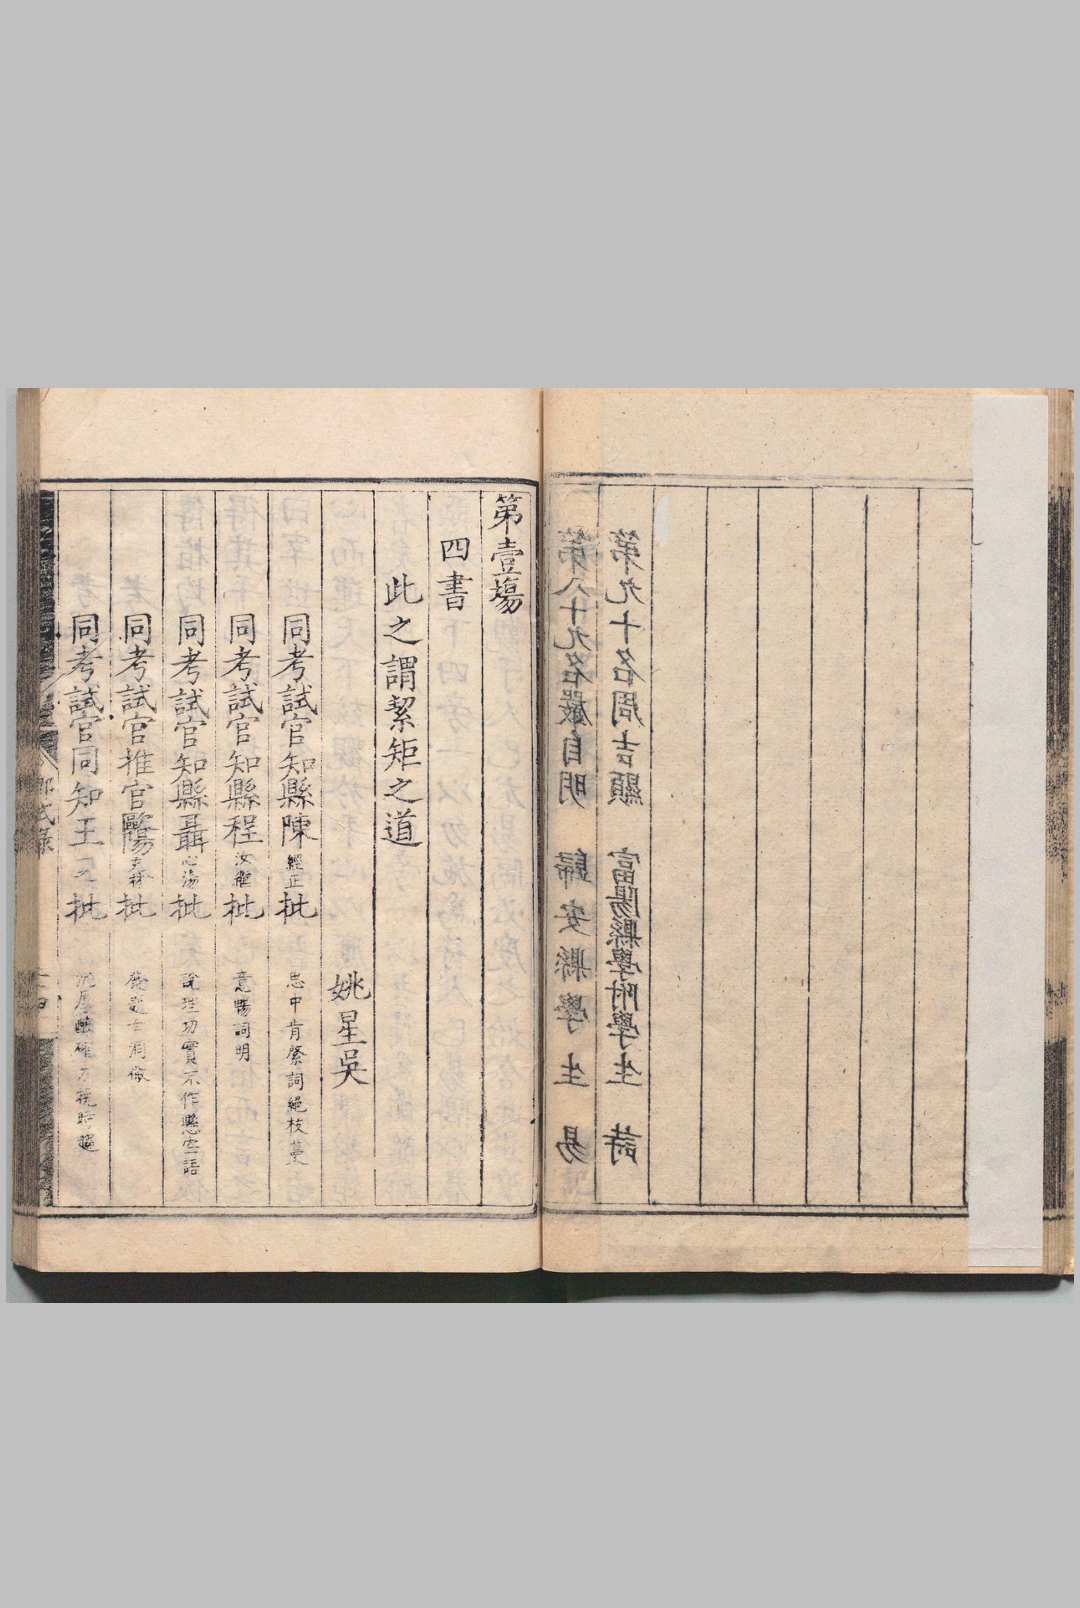 第九十名周吉顯 富陽縣學附學生 詩
第八十九名嚴自明 歸安縣學生 易
第壹塲
四書
此之謂絜矩之道
姚星吳
同考試官知縣陳經正批 思中肯綮詞絕枝蔓
同考試官知縣程汝繼批 意暢詞明
同考試官知縣聶心湯批 說理切實不作懸空語
同考試官推官陽批
同考試官同知王批